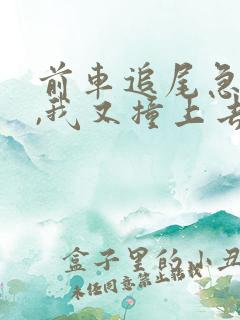 前车追尾急
,我又撞上去
盒子里的小丑
未经同意禁止转载